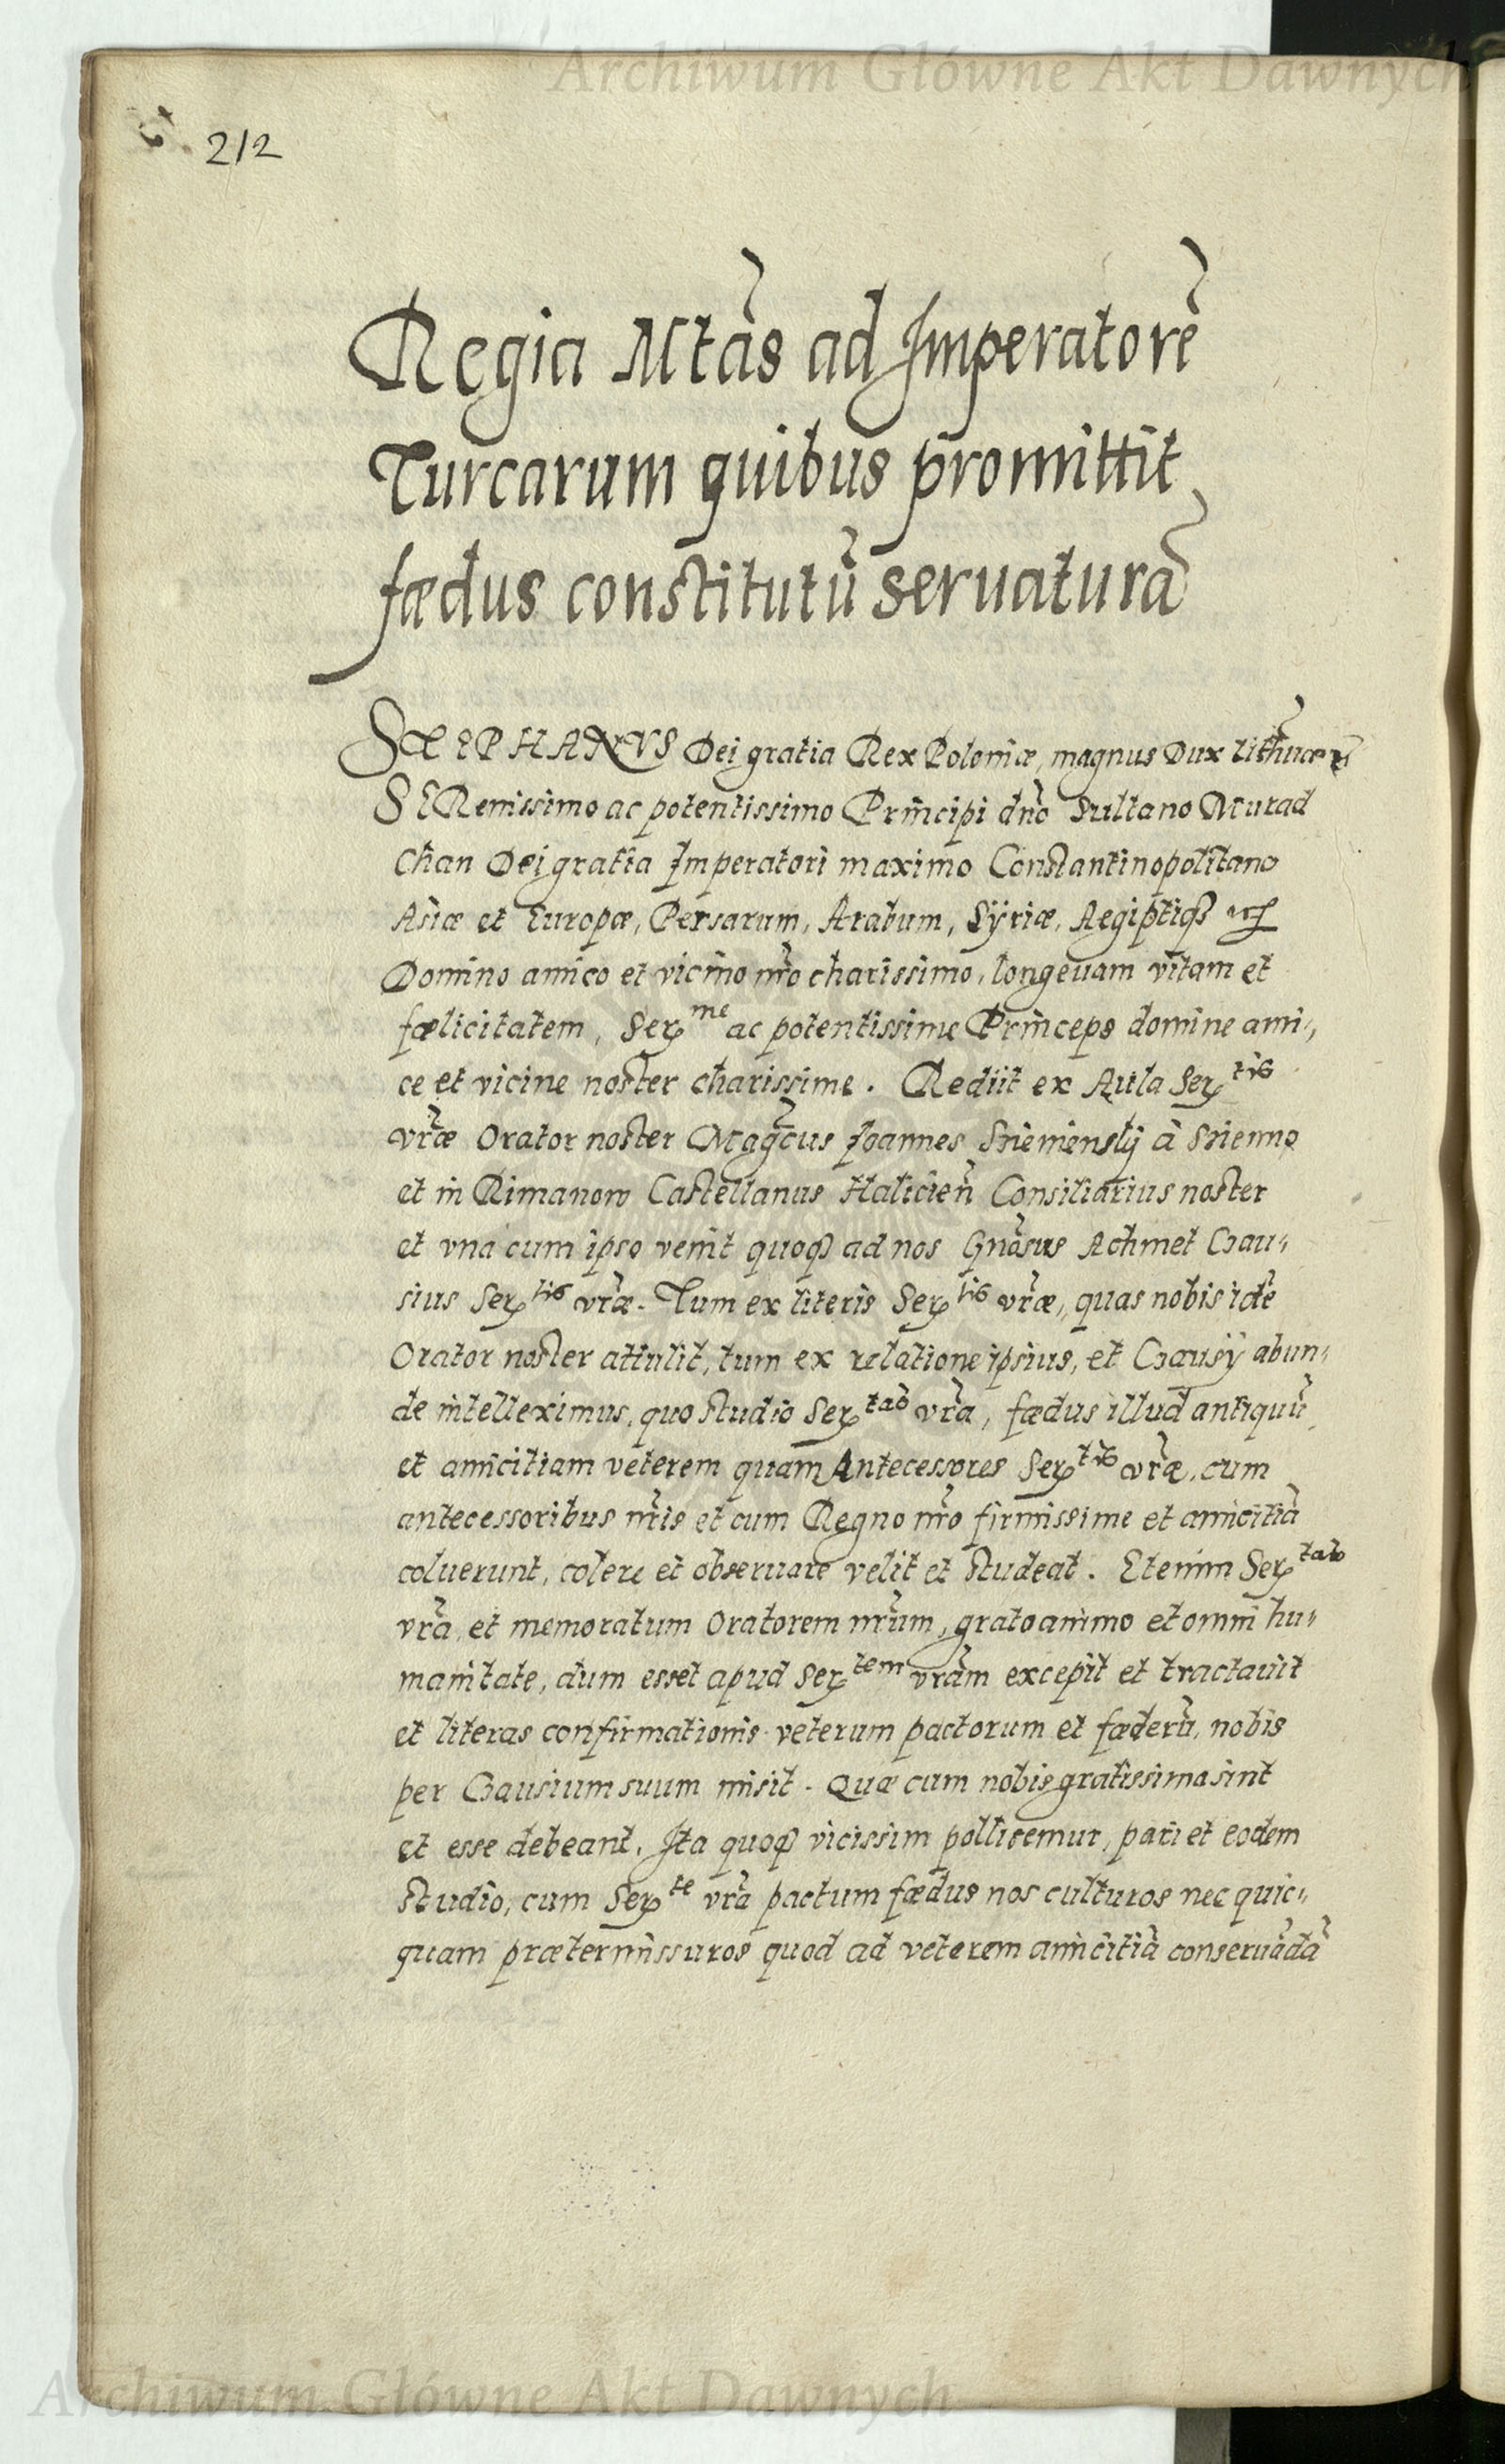 Archiwum Główne Akt Dawnych
212
Regia Mtãs ad Imperatorẽ
Turcarum quibus promittit
fædus constitutũ seruaturã
STEPHANVS Dei gratia Rex Poloniæ, magnus Dux Lithuæ
SERenissimo ac potentissimo Principi dño Sultano Murad
Chan Dei gratia Imperatori maximo Constantinopolitano
Asiæ et Europæ, Persarum, Arabum, Syriæ, Aegiptiqȝ
Domino amico et vicino nr̃o charissimo, longeuam vitam et
fælicitatem, Serme ac potentissime Princeps domine ami„
ce et vicine noster charissime. Rediit ex Aula Sertis
vr̃æ Orator noster Magc̃us Joannes Sieniensky à Sienno
et in Rimanow Castellanus Halicieñ Consiliarius noster
et vna cum ipso venit quoqȝ ad nos Gnõsus Achmet Czau„
sius Sertis vr̃æ. Tum ex literis Sertis vr̃æ, quas nobis idẽ
Orator noster attulit, tum ex relatione ipsius, et Czausÿ abun„
de intelleximus, quo studio Sertas vr̃a, fædus illud antiquũ
et amicitiam veterem quam Antecessores Sertis vr̃æ, cum
antecessoribus nr̃is et cum Regno nr̃o firmissime et amicitiã
coluerunt, colere et obseruare velit et studeat. Etenim Sertas
vr̃a et memoratum Oratorem nr̃um, grato animo et omni hu„
manitate, dum esset apud Sertem vr̃am excepit et tractauit
et literas confirmationis veterum pactorum et fæderũ, nobis
per Czausium suum misit. Quæ cum nobis gratissima sint
et esse debeant, Ita quoqȝ vicissim pollicemur, pari et eodem
studio, cum Serte vr̃a pactum fædus nos culturos nec quic„
quam prætermissuros quod ad veterem amicitiã conseruãdã
Archiwum Główne Akt Dawnych